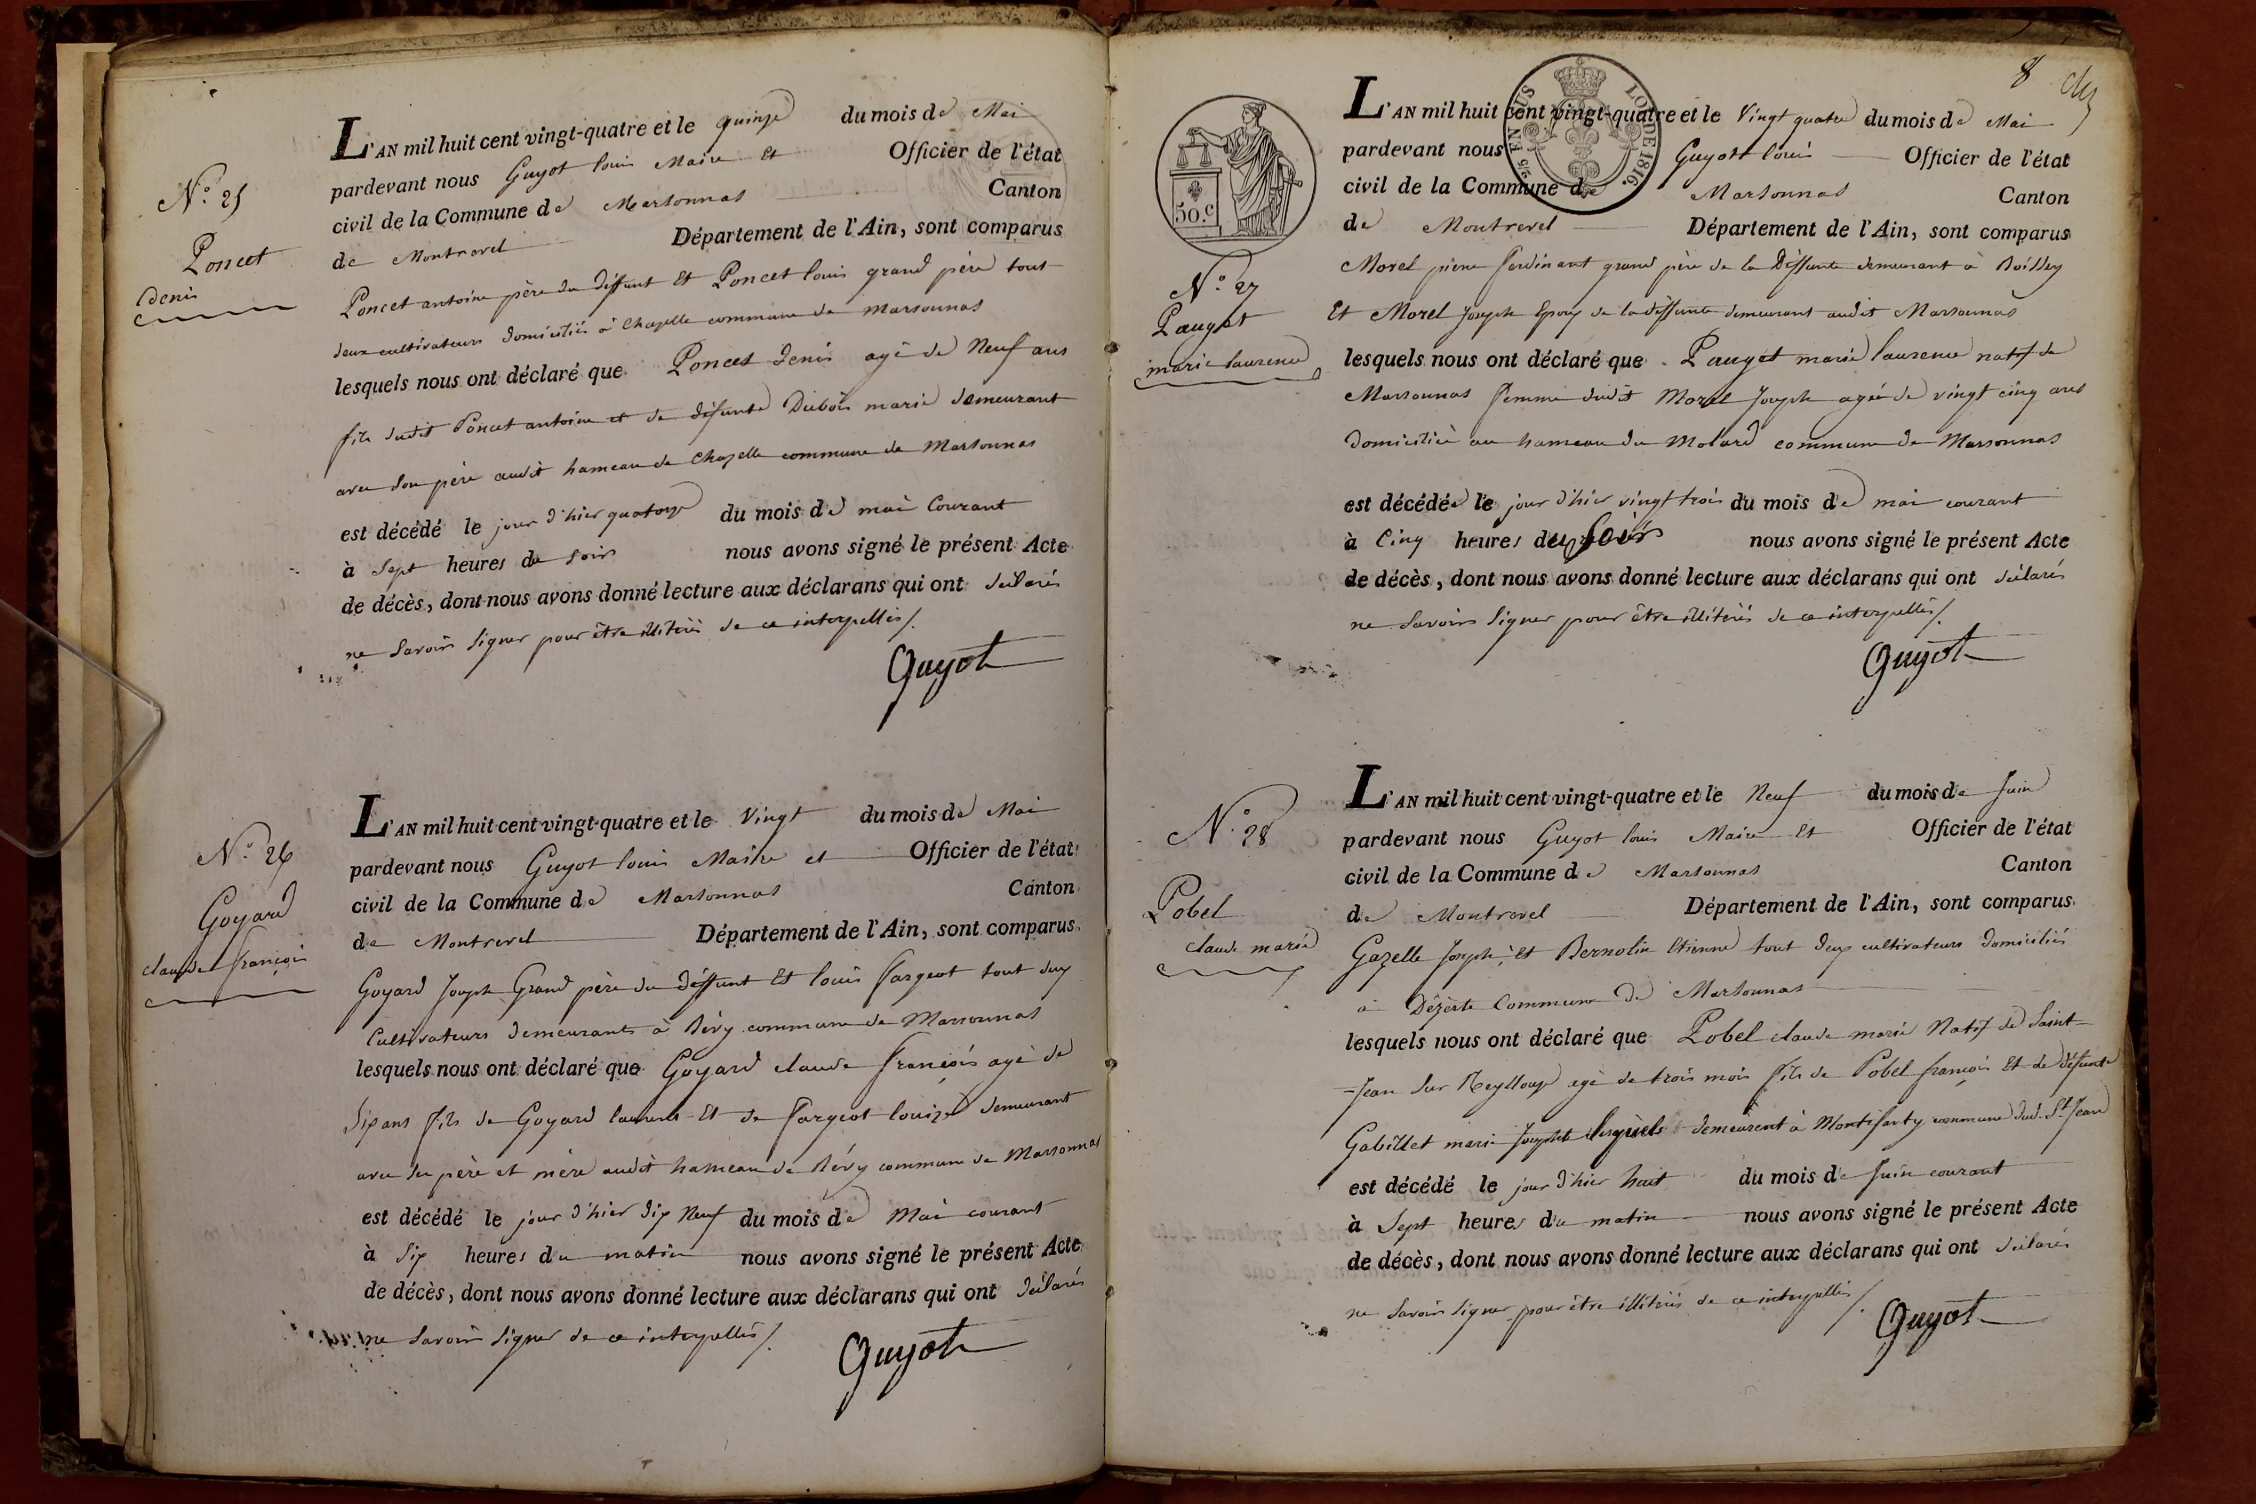 N.° 25
Poncet
denis
L'AN mil huit cent vingt-quatre et le quinze du mois de Mai
pardevant nous Guyot louis Maire et Officier de l'état
civil de la Commune de Marsonnas Canton
de Montrevel Département de l'Ain, sont comparus
Poncet antoine père du deffunt Et Poncet louis grand père tout
deux cultivateurs domiciliés à Chazelle commune de Marsonnas
lesquels nous ont déclaré que Poncet denis agé de Neuf ans
fils dudit Poncet antoine et de défunte Dubois marie demeurant
avec son père audit hameau de Chazelle commune de Marsonnas
est décédé le jour d'hier quatorze du mois de mai Courant
à Sept heures de soir nous avons signé le présent Acte
de décès, dont nous avons donné lecture aux déclarans qui ont déclarés
ne Savoir Signer pour être illitérés de ce interpellés/.
Guyot
N.° 26
Goyard
claude françois
L'AN mil huit cent vingt-quatre et le Vingt du mois de Mai
pardevant nous Guyot louis Maire et Officier de l'état
civil de la Commune de Marsonnas Canton
de Montrevel Département de l'Ain, sont comparus
Goyard Joseph Grand père du deffunt Et louis fargeot tout deux
Cultivateurs demeurants à Révy commune de Marsonnas
lesquels nous ont déclaré que Goyard claude françois agé de
dix ans fils de Goyard laurent Et de fargeot louize demeurant
avec ses père et mère audit hameau de Révy commune de Marsonnas
est décédé le jour d'hier dix Neuf du mois de Mai courant
à Six heures du matin nous avons signé le présent Acte
de décès, dont nous avons donné lecture aux déclarans qui ont déclarés
ne Savoir Signer de ce interpellés/.
Guyot
8
50.c
EN SUS
LOI DE 1816.
N.° 27
Pauget
marie laurence
L'AN mil huit cent vingt-quatre et le Vingt quatre du mois de Mai
pardevant nous Guyot louis Officier de l'état
civil de la Commune de Marsonnas Canton
de Montrevel Département de l'Ain, sont comparus
Morel pierre ferdinant grand père de la Deffunte demeurant à Boissey
Et Morel Joseph Epoux de la deffunte demeurant audit Marsonnas
lesquels nous ont déclaré que Pauget marie laurence natif de
Marsonnas femme dudit Morel Joseph agée de vingt cinq ans
Domiciliée au hameau du Molard commune de Marsonnas
est décédée le jour d'hier vingt trois du mois de mai courant
à Cinq heures du soir nous avons signé le présent Acte
de décès, dont nous avons donné lecture aux déclarans qui ont déclarés
ne Savoir Signer pour être illitérés de ce interpellés/.
Guyot
N.° 28
Pobel
claude marie
L'AN mil huit cent vingt-quatre et le Neuf du mois de Juin
pardevant nous Guyot louis Maire Et Officier de l'état
civil de la Commune de Marsonnas Canton
de Montrevel Département de l'Ain, sont comparus
Gazelle Joseph, Et Bernolin Etienne tout deux cultivateurs domiciliés
à Dézerte Commune De Marsonnas
lesquels nous ont déclaré que Pobel claude marie Natif de Saint-
=Jean Sur Reyssouze agé de trois mois fils de Pobel françois Et de défunte
Gabillet marie Josephte lesquels demeurent à Montifarty commune dud. St Jean
est décédé le jour d'hier huit du mois de Juin courant
à Sept heures du matin nous avons signé le présent Acte
de décès, dont nous avons donné lecture aux déclarans qui ont déclarés
ne Savoir Signer pour être illitérés de ce interpellés/.
Guyot